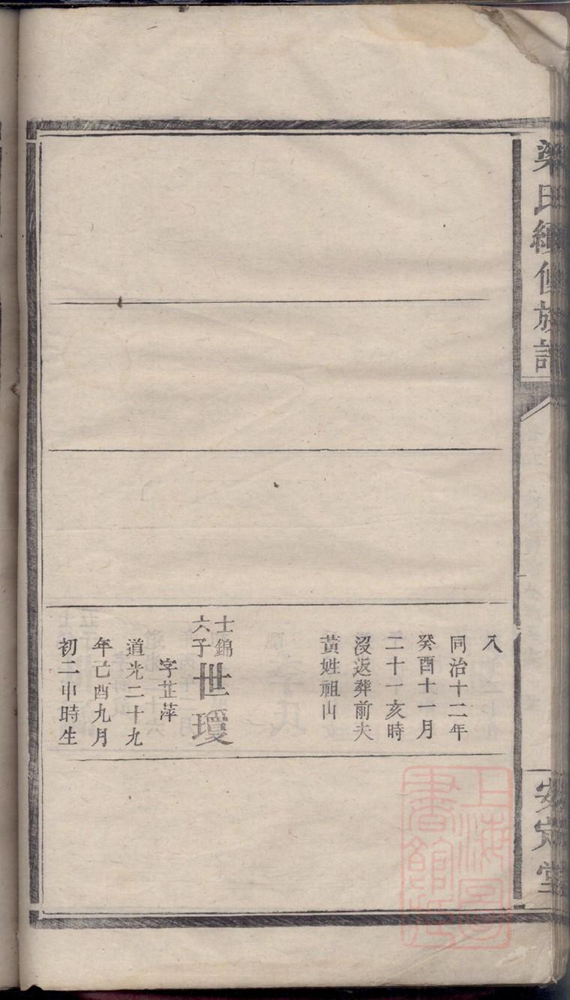 梁氏續修族譜
入
同治十二年
癸酉十一月
二十一亥時
沒返葬前夫
黃姓祖山
士錦
六子
世瓊
字芷萍
道光二十九
年己酉九月
初二申時生
安定堂
上海圖
書館藏